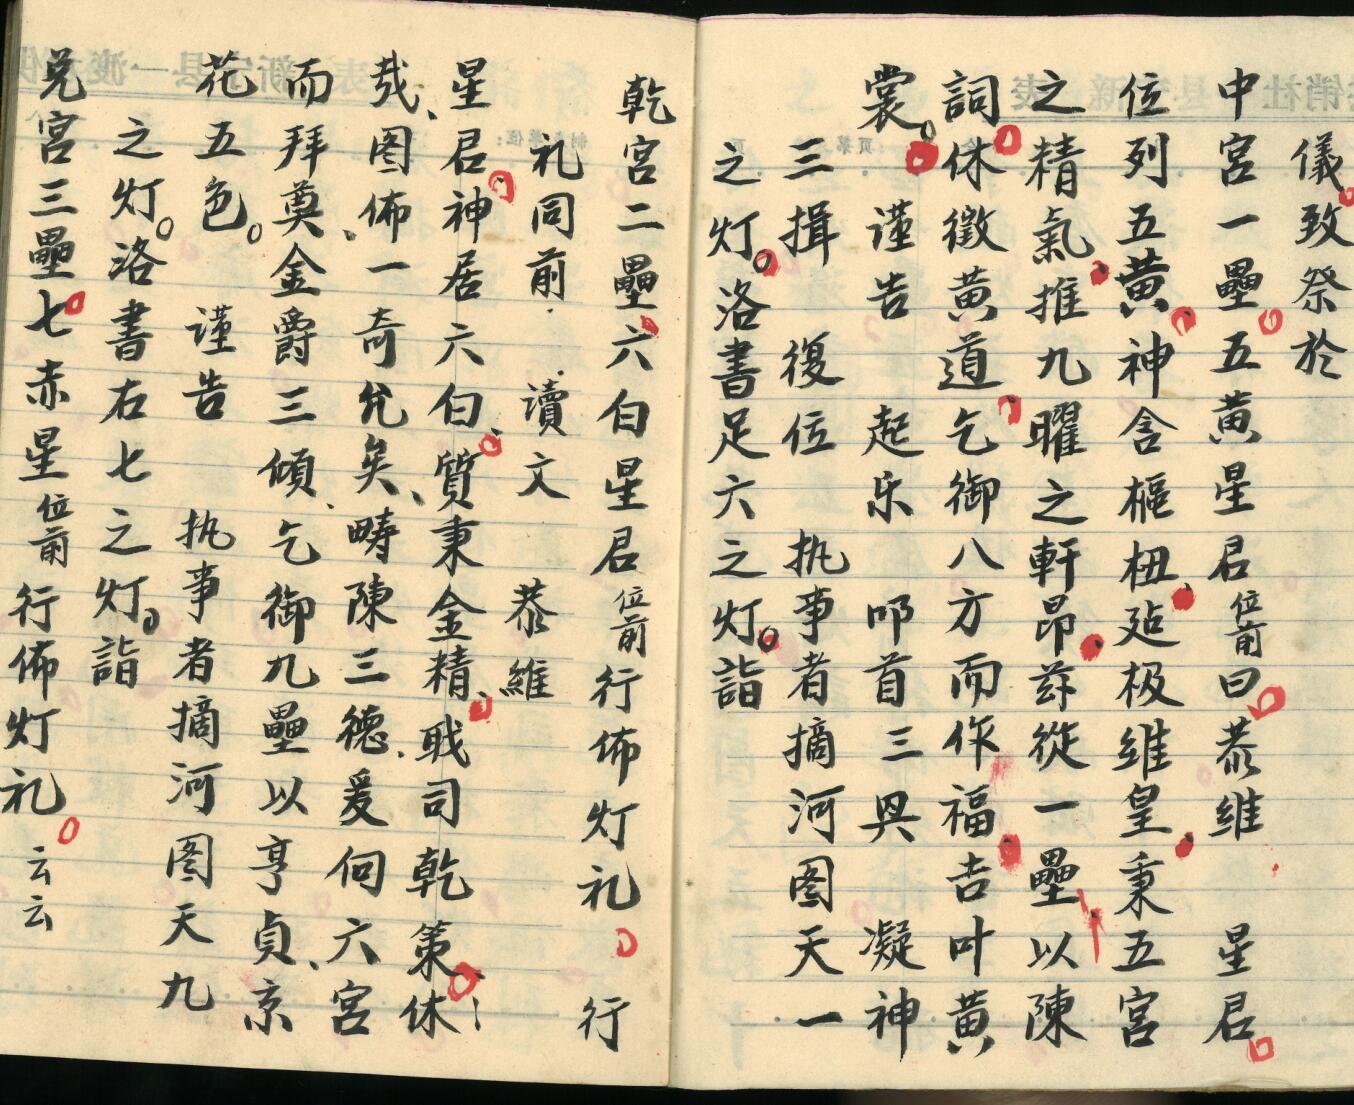 儀致祭於
中宮一壘五黃星君位前曰恭維 星君
位列五黃神含樞杻㢟极維皇秉五宮
之精氣推九曜之軒昂茲從一壘以陳
詞休徵黃道乞御八方而作福吉叶黃
裳 謹告 起乐 叩首三興 凝神
三揖 復位 执事者摘河图天一
之灯洛書足六之灯詣
乾宮二壘六白星君位前行佈灯礼 行
礼同前 讀文 恭維
星君神居六白質秉金精戝司乾策休
哉图佈一奇允矣疇陳三德爰伺六宮
而拜奠金爵三傾乞御九壘以亨貞京
花五色 谨告 执事者摘河图天九
之灯洛書右七之灯詣
兑宮三壘七赤星位前行佈灯礼云云